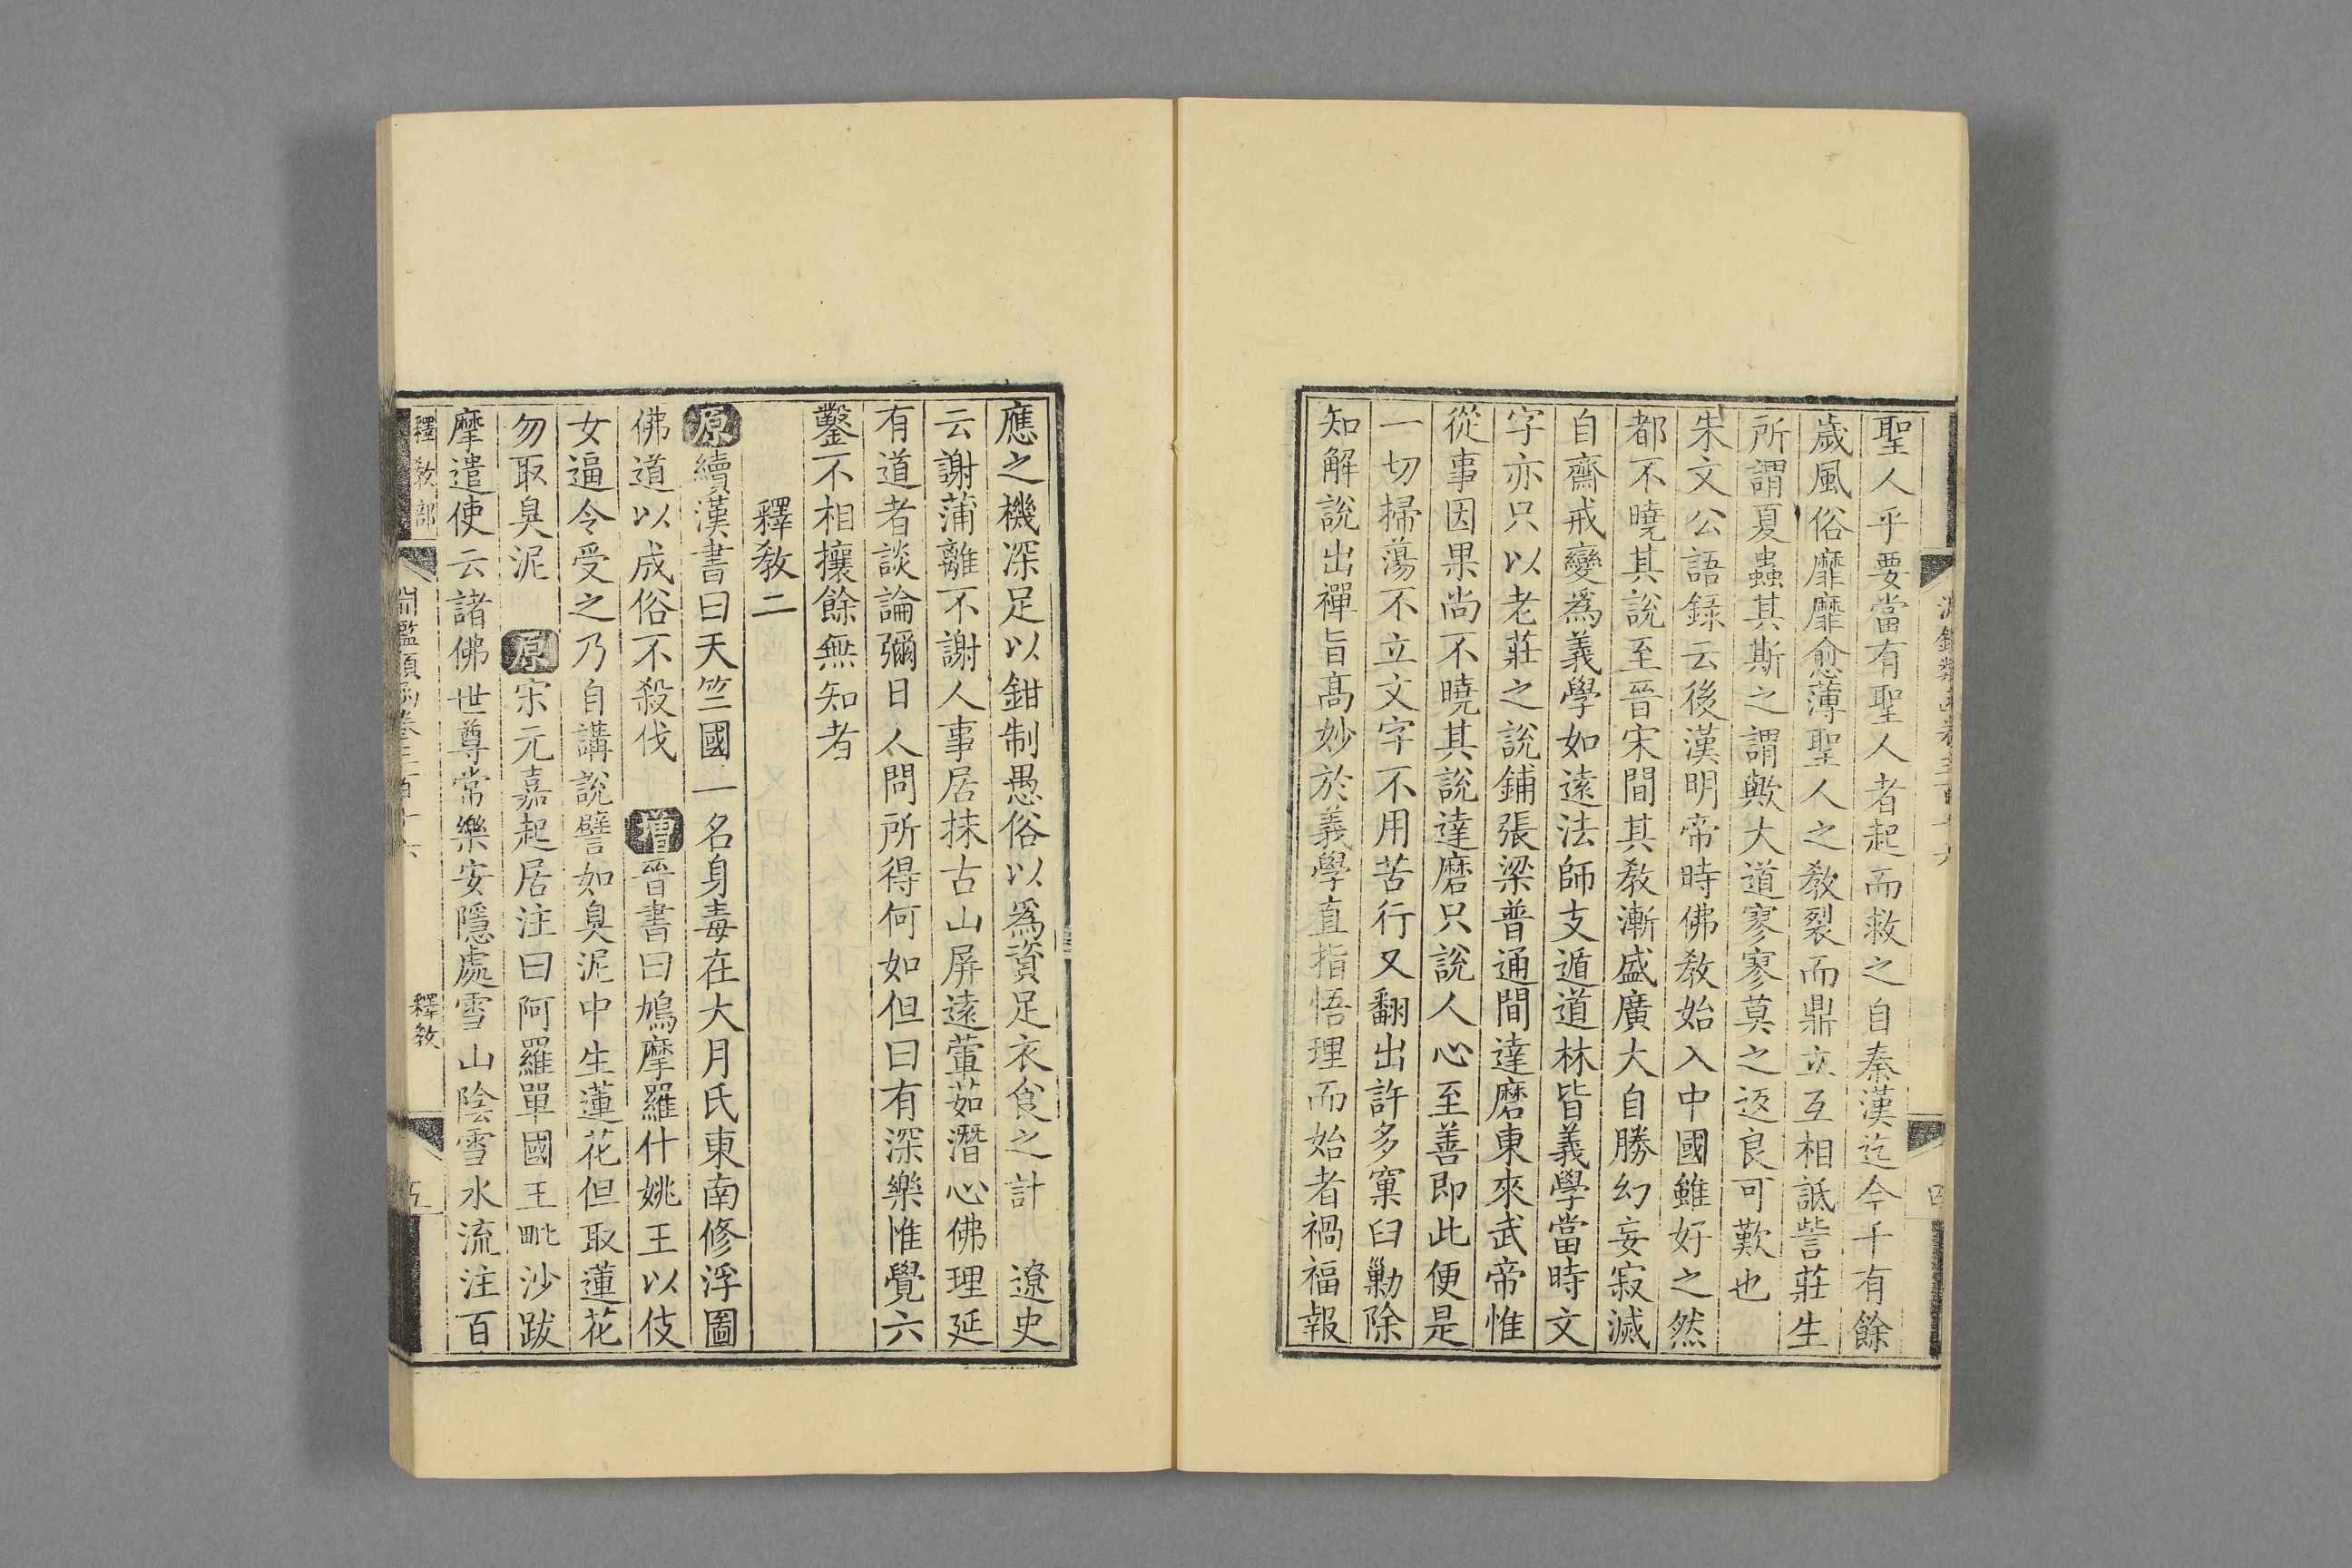 聖人乎要當有聖人者起而救之自秦漢迄今千有餘
歲風俗靡靡愈薄聖人之教裂而鼎立互相詆訾莊生
所謂夏蟲其斯之謂歟大道寥寥莫之返良可歎也
朱文公語錄云後漢明帝時佛教始入中國雖好之然
都不曉其說至晉宋間其教漸盛廣大自勝幻妄寂滅
自齋戒變爲義學如遠法師支遁道林皆義學當時文
字亦只以老莊之說鋪張梁普通間達磨東來武帝惟
從事因果尚不曉其說達磨只說人心至善即此便是
一切掃蕩不立文字不用苦行又翻出許多窠臼勦除
知解說出禪旨高妙於義學直指悟理而始者禍福報
應之機深足以鉗制愚俗以爲資足衣食之計 遼史
云謝蒲離不謝人事居抹古山屏遠葷茹潛心佛理延
有道者談論彌日人問所得何如但曰有深樂惟覺六
鑿不相攘餘無知者
釋教二
原續漢書曰天竺國一名身毒在大月氏東南修浮圖
佛道以成俗不殺伐 增晉書曰鳩摩羅什姚王以伎
女逼令受之乃自講說譬如臭泥中生蓮花但取蓮花
勿取臭泥 原宋元嘉起居注曰阿羅單國王毗沙跋
摩遣使云諸佛世尊常樂安隱處雪山陰雪水流注百
釋教部
淵鑑類函卷三百十六
釋教
五